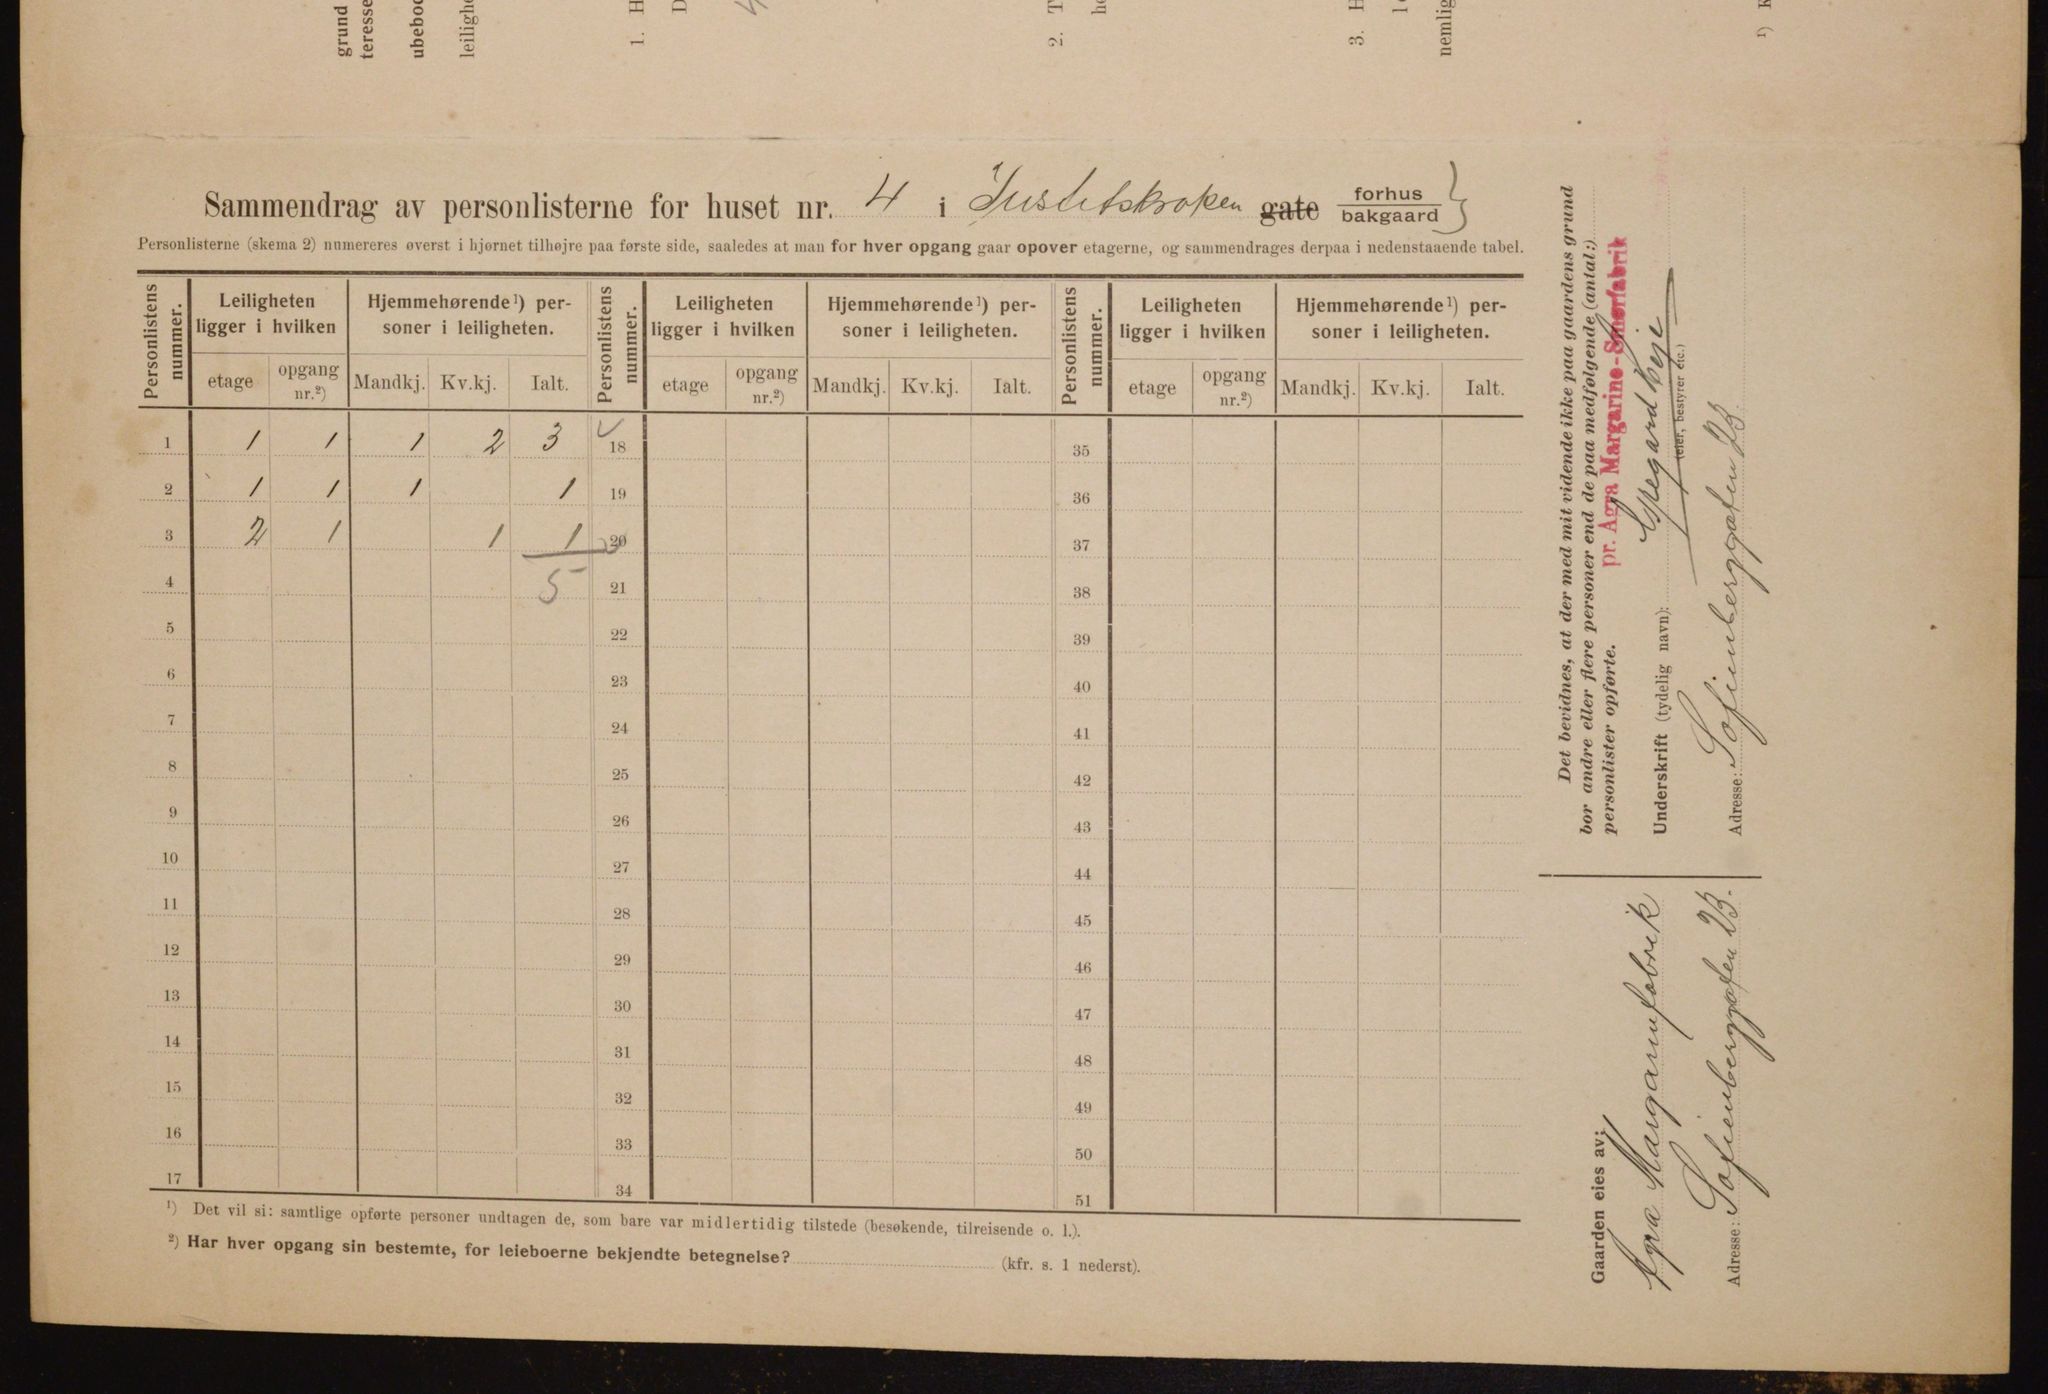 grund
teresse
ubeboe
leilighe
1. H
D
4
2. T
he
3. H
1
nemlig
¹) K
Sammendrag av personlisterne for huset nr. 4 i Justitskroken gate forhus
bakgaard }
Personlisterne (skema 2) numereres øverst i hjørnet tilhøjre paa første side, saaledes at man for hver opgang gaar opover etagerne, og sammendrages derpaa i nedenstaaende tabel.
Personlistens nummer. Leiligheten ligger i hvilken Hjemmehørende¹) personer i leiligheten. Personlistens nummer. Leiligheten ligger i hvilken Hjemmehørende¹) personer i leiligheten. Personlistens nummer. Leiligheten ligger i hvilken Hjemmehørende¹) personer i leiligheten.
etage opgang nr.²) Mandkj. Kv.kj. Ialt. etage opgang nr.²) Mandkj. Kv.kj. Ialt. etage opgang nr.²) Mandkj. Kv.kj. Ialt.
1 1 1 1 2 3 18 35
2 1 1 1 1 19 36
3 2 1 1 1 20 37
4 5 21 38
5 22 39
6 23 40
7 24 41
8 25 42
9 26 43
10 27 44
11 28 45
12 29 46
13 30 47
14 31 48
15 32 49
16 33 50
17 34 51
¹) Det vil si: samtlige opførte personer undtagen de, som bare var midlertidig tilstede (besøkende, tilreisende o. l.).
²) Har hver opgang sin bestemte, for leieboerne bekjendte betegnelse? (kfr. s. 1 nederst).
Det bevidnes, at der med mit vidende ikke paa gaardens grund
bor andre eller flere personer end de paa medfølgende (antal:)
personlister opførte.
pr. Agra Margarine-Smørfabrik
Underskrift (tydelig navn):
(eier, bestyrer etc.)
Adresse: Sofienberggaten 23.
Gaarden eies av:
Agra Margarinfabrik
Adresse: Sofienberggaten 23.